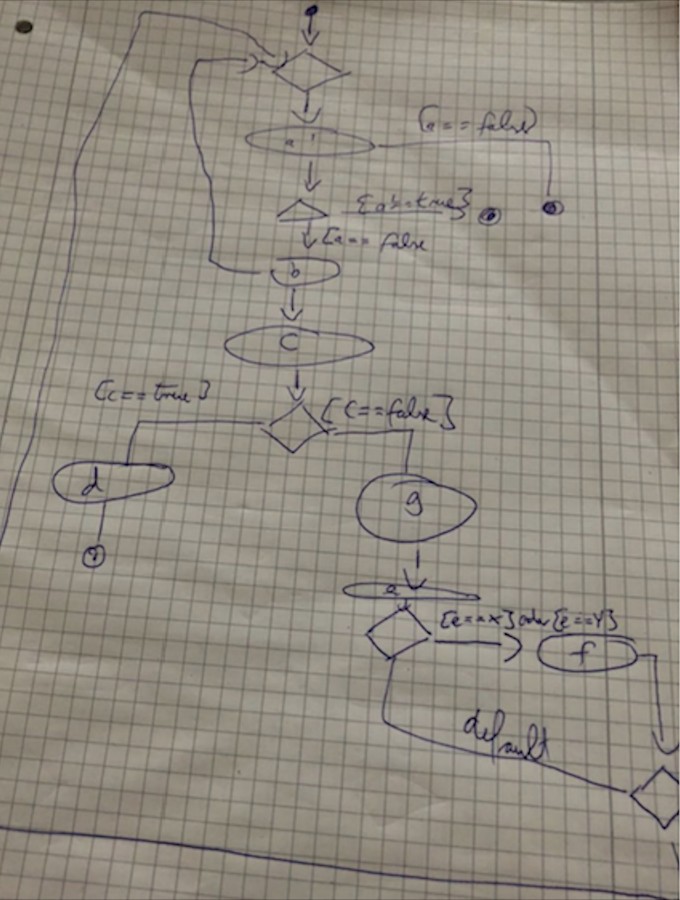 [a == false]
a
[a == false
b
C
[c == true]
[C == false]
d
g
e
[e == X] oder [e == Y]
f
default